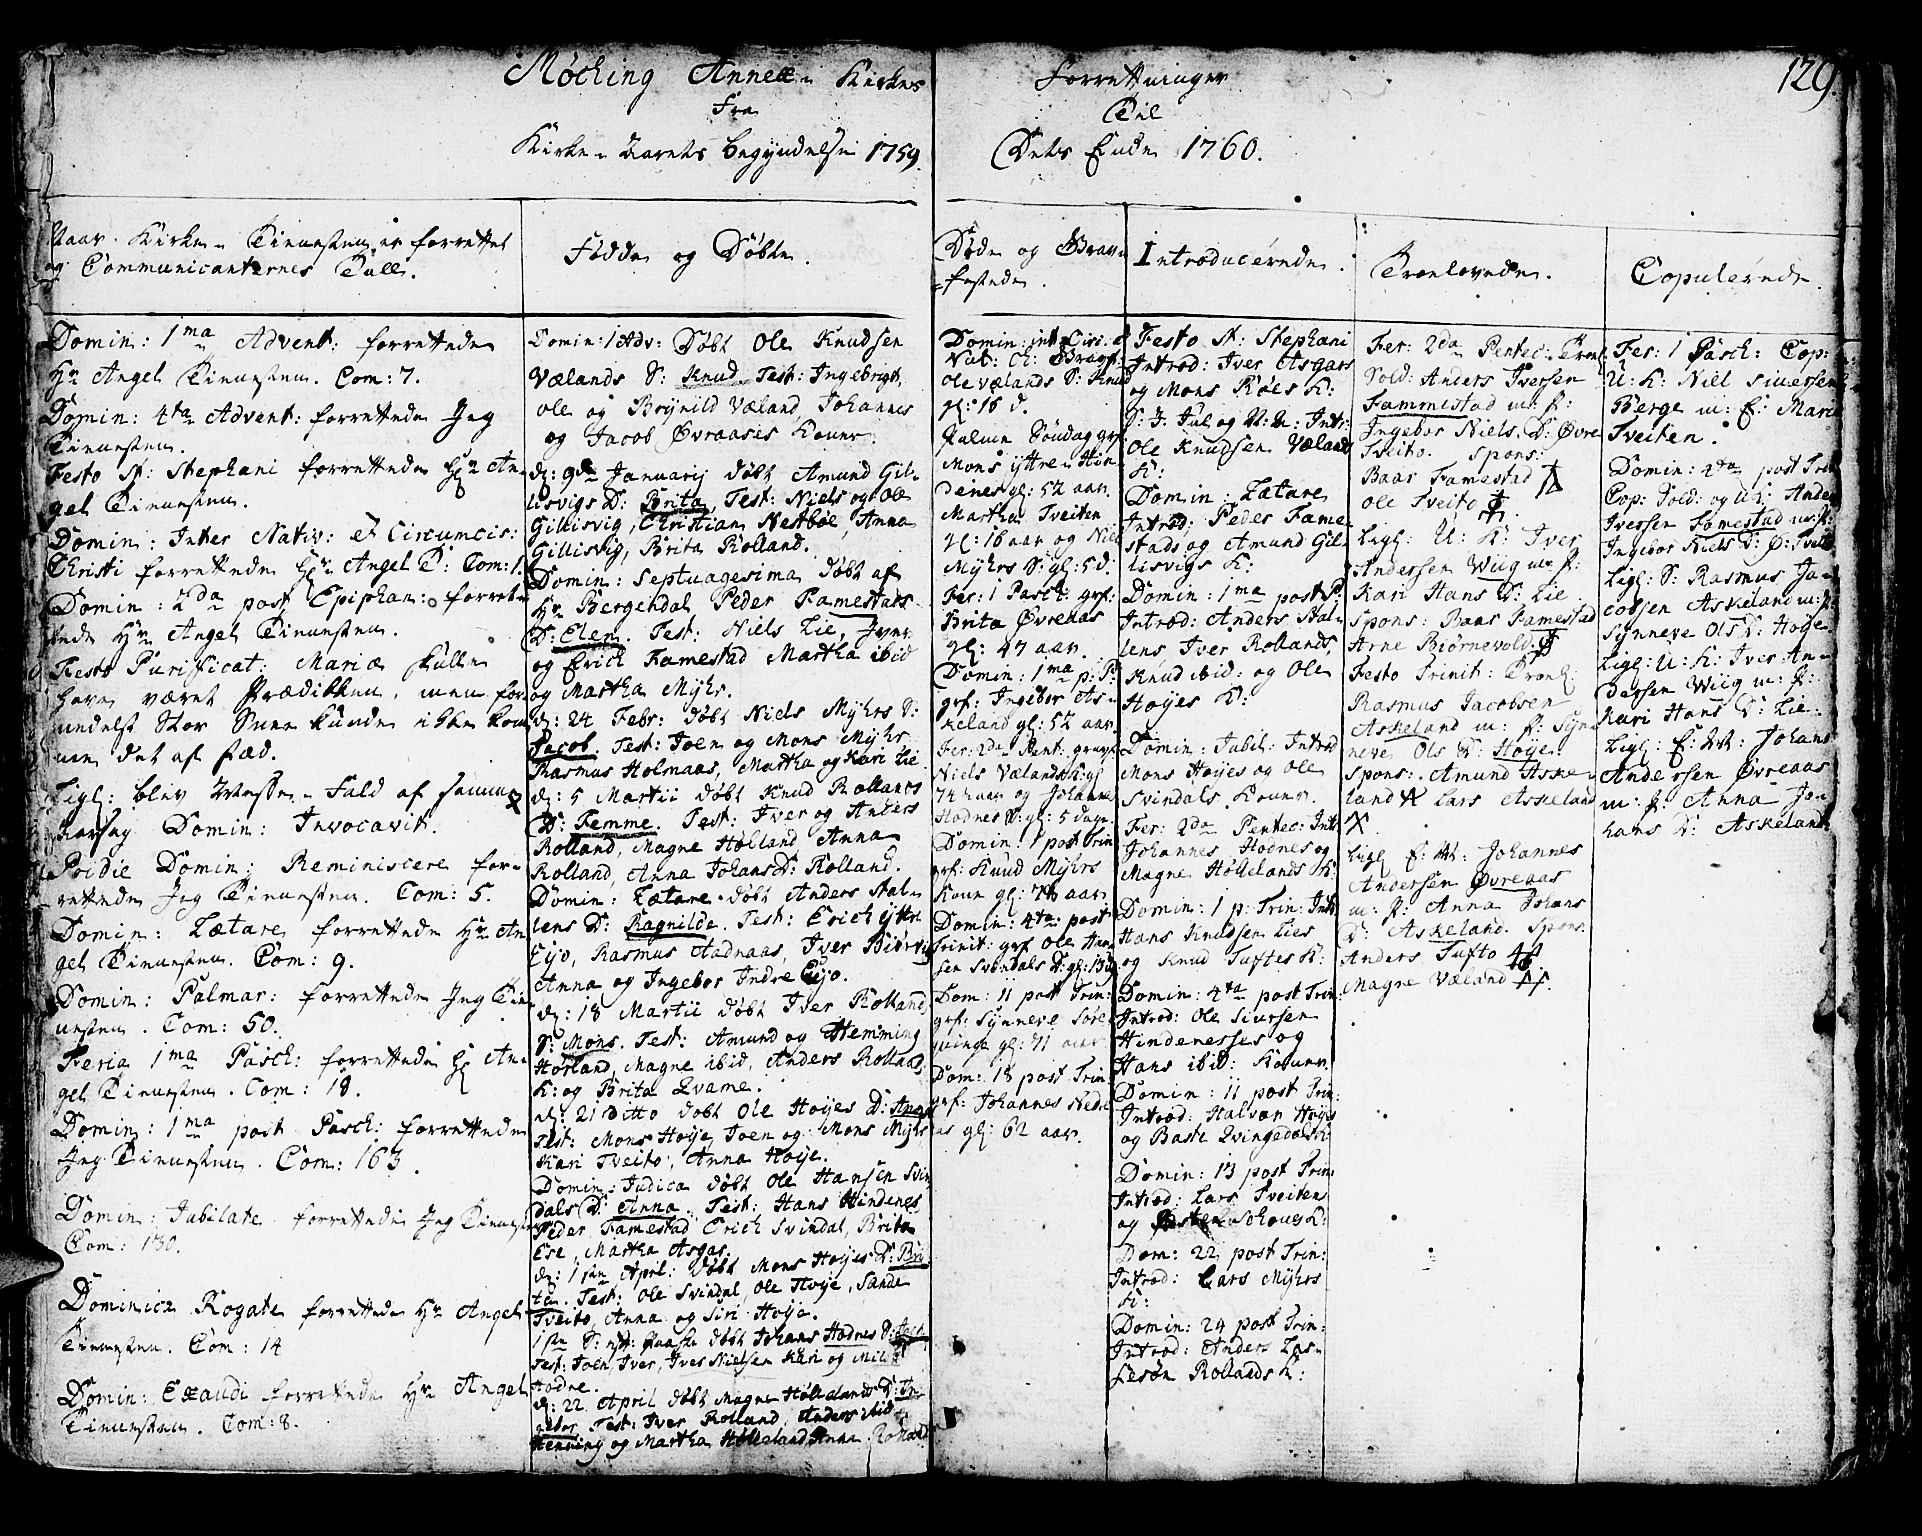 129.
Møching Annex Kirkes Forrettninger
Fra Til
Kirke Aarets begyndelse 1759. Dets Ende 1760.
Naar Kirke Tienesten er forrettet
og Communicanternes Tall.
Domin: 1ma Advent: forrettede
Hr Angel Tienesten. Com: 7.
Domin: 4ta Advent: forrettede Jeg
Tienesten.
Festo St: Stephani forrettede Hr An-
gel Tienesten.
Domin: Inter Nativ: et Circumcis:
Christi forrettede Hr Angel T: Com: 1.
Domin: 2da post Epiphan: forret-
tede Hr Angel Tienesten.
Festo Purificat: Mariæ skulle
have været Prædikken, men for-
medelst Stor Snee kunde ikke kom
me det af sted.
Ligl: blev Messe-Fald af samme
Aarsag Domin: Invocavit.
Poidie Domin: Reminiscere for-
rettede Jeg Tienesten. Com: 5.
Domin: Lætare forrettede Hr An
gel Tienesten. Com: 9.
Domin: Palmar: forrettede Jeg Tie
nesten. Com: 50.
Feria 1ma Pasch: forrettede Hr An-
gel Tienesten. Com: 18.
Domin: 1ma post Pasch: forrettede
Jeg Tienesten. Com: 163.
Domin: Jubilate forrettede Jeg Tienesten
Com: 130.
Dominica Rogate forrettede Hr Angel
Tienesten. Com: 14
Domin: Exaudi forrettede Hr Angel
Tienesten. Com: 8.
Fødde og Døbte.
Domin: 1 Adv: Døbt Ole Knudsen
Vælands S: Knud. Test: Ingebrigt,
Ole og Brynild Væland, Johannes
og Jacob Øvraases Koner.
d: 9de Januarij døbt Amund Gil-
lisvigs D: Brita, Test: Niels og Ole
Gillisvig, Christian Nestbøe, Anna
Gillisvig, Brita Rolland.
Domin: Septuagesima døbt af
Hr Bergendal Peder Famestads
D: Elen. Test: Niels Lie, Iver
og Erich Famestad Martha ibid
og Martha Myhr.
d: 24 Febr: døbt Niels Myhrs S:
Jacob. Test: Joen og Mons Myhr
Rasmus Holmaas, Martha og Kari Lie
d: 5 Martii døbt Knud Rollands
D: Femme. Test: Iver og Anders
Rolland, Magne Hølland, Anna
Rolland, Anna Johans D: Rolland.
Domin: Lætare døbt Anders Stal-
lens D: Ragnilde. Test: Erich Ytre
Eijo, Rasmus Aadnaas, Iver Biørvig
Anna og Ingebor Indre Eijo.
d: 18 Martii døbt Iver Rolland
S: Mons. Test: Amund og Hemming
Horland, Magne ibid, Anders Rollands
K: og Brita Qvame.
d: 21 Ditto døbt Ole Høyes D: Anna
Test: Mons Høye, Joen og Mons Myhr
Kari Tveito, Anna Høye.
Domin: Judica døbt Ole Hansen Svin
dals D: Anna. Test: Hans Hindenes
Peder Famestad Erich Svindal, Brita
Ese, Martha Asgar.
d: 1ste April: døbt Mons Høyes D: Bri
ta. Test: Ole Svindal Ole Høye, Sande
Tveito, Anna og Siri Høye.
1ste S: eft: Paaske døbt Johans Hodnes D:
Test: Joen, Iver, Iver Nielsen Kari og
Hodne.
d: 22 April døbt Magne Hølkelands D: In
gebor Test: Iver Rolland, Anders ibid
Henning og Martha Hølkeland Anna Rolland
Døde og Grav-
festede.
Domin: int: Circ: et
Nat: Ch: Gravf:
Ole Vælands S: Knud
gl: 16 d.
Palme Søndag grf:
Mons Yttre Hin
denes gl: 52 aar.
Martha Tveiten
gl: 16 aar og Niels
Myhrs S: gl: 5 d.
Fer: 1 Pasch: grf:
Brita Øvreaas
gl: 47 aar.
Domin: 1ma p: P:
grf: Ingebor As-
keland gl: 52 aar.
Fer: 2da Pent: gravf:
Niels Vælands K: gl:
74 aar og Johannes
Hodnes D: gl: 5 dage
Domin: 1 post Trin
grf: Knud Myhrs
Kone gl: 78 aar
Domin: 4ta post
Trinit: grf Ole Han
sen Svindals D: gl: 13
Dom: 11 post Trin:
grf: Synneve Søre
qvinge gl: 71 aar
Dom: 18 post Trin
grf: Johannes Nedre
aas gl: 62 aar.
Introducerede.
Festo St: Stephani
Introd: Iver Asgars
og Mons Røles K:
S: I. Jul og N: A: Intr:
Ole Knudsen Væland
K:
Domin: Lætare
Introd: Peder Fame-
stads og Amund Gil-
lisvigs K:
Domin: 1ma post P:
Introd: Anders Stal-
lens Iver Rollands,
Knud ibid: og Ole
Høyes K:
Domin: Jubil: Introd
Mons Høyes og Ole
Svindals Koner.
Fer: 2da Pentec: Intr
Johannes Hodnes og
Magne Hølkelands K:
Domin: 1 p: Trin: Intr
Hans Knudsen Lies
og Knud Tuftes K:
Domin: 4ta post Trin:
Introd: Ole Siursen
Hindenesses og
Hans ibid: Koner.
Domin: 11 post Trin:
Introd: Halvor Høyes
og Baste Qvingedals K:
Domin: 13 post Trin:
Introd: Lars Tveitens
og Schoues K:
Dom: 22 post Trin:
Introd: Lars Myhrs
K:
Domin: 24 post Trin:
Introd: Anders Las-
sesøn Rollands K:
Troelovede.
Fer: 2da Pentec: Troel:
Sold: Anders Iversen
Fammestad m: P:
Ingebor Niels D: Øvre
Tveito. Spons:
Baar Famestad
Ole Tveito
Ligl: U: K: Iver
Andersen Wiig m: P:
Kari Hans D: Lie
Spons: Baar Famestad
Arne Biørnevold
Festo Trinit: Troel:
Rasmus Jacobsen
Askeland m: P: Syn
neve Ols D: Høye
Spons: Amund Aske-
land Lars Askeland
Ligl E: M: Johannes
Andersen Øvreaas
m: P: Anna Johans
D: Askeland. Spons:
Anders Tufto
Magne Væland
Copulerede.
Fer: 1 Pasch: Cop:
U: K: Niel Siversen
Berge m: E: Marie
Tveiten.
Domin: 4ta post Trin
Cop: Sold: og U: K: Anders
Iversen Famestad m: P:
Ingebor Niels D: Ø: Tveito
Ligl: S: Rasmus Ja-
cobsen Askeland m: P:
Synneve Ols D: Høye
Ligl: U: K: Iver An-
dersen Wiig m: P:
Kari Hans D: Lie
Ligl: E: M: Johans
Andersen Øvreaas
m: P: Anna Jo-
hans D: Askeland